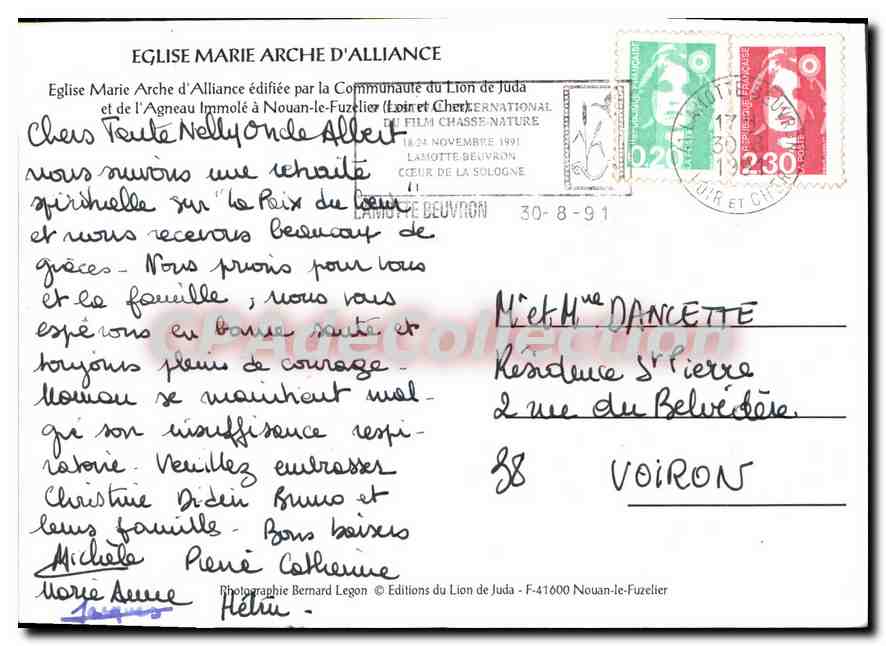 EGLISE MARIE ARCHE D'ALLIANCE
Eglise Marie Arche d'Alliance édifiée par la Communauté du Lion de Juda
et de l'Agneau Immolé à Nouan-le-Fuzelier (Loir et Cher).
INTERNATIONAL
DU FILM CHASSE-NATURE
18-24 NOVEMBRE 1991
LAMOTTE-BEUVRON
CŒUR DE LA SOLOGNE
LAMOTTE BEUVRON 30-8-91
REPUBLIQUE FRANÇAISE
0,20
REPUBLIQUE FRANÇAISE
LA POSTE
2,30
LAMOTTE-BEUVRON
17
30
19
LOIR ET CHER
Chers Tante Nelly Oncle Albert
nous suivons une retraite
spirituelle sur "la Paix du cœur"
et nous recevons beaucoup de
grâces - Nous prions pour vous
et la famille, nous vous
espérons en bonne santé et
toujours pleins de courage -
Maman se maintient mal-
gré son insuffisance respi-
ratoire. Veuillez embrasser
Christine Didier Bruno et
leurs famille - Bons baisers
Michèle Pierre Catherine
Marie Anne
Jacques
Mr et Mme DANCETTE
Résidence St Pierre
2 rue du Belvédère
38 VOIRON
Photographie Bernard Legon © Editions du Lion de Juda - F-41600 Nouan-le-Fuzelier
CPAdeCollection